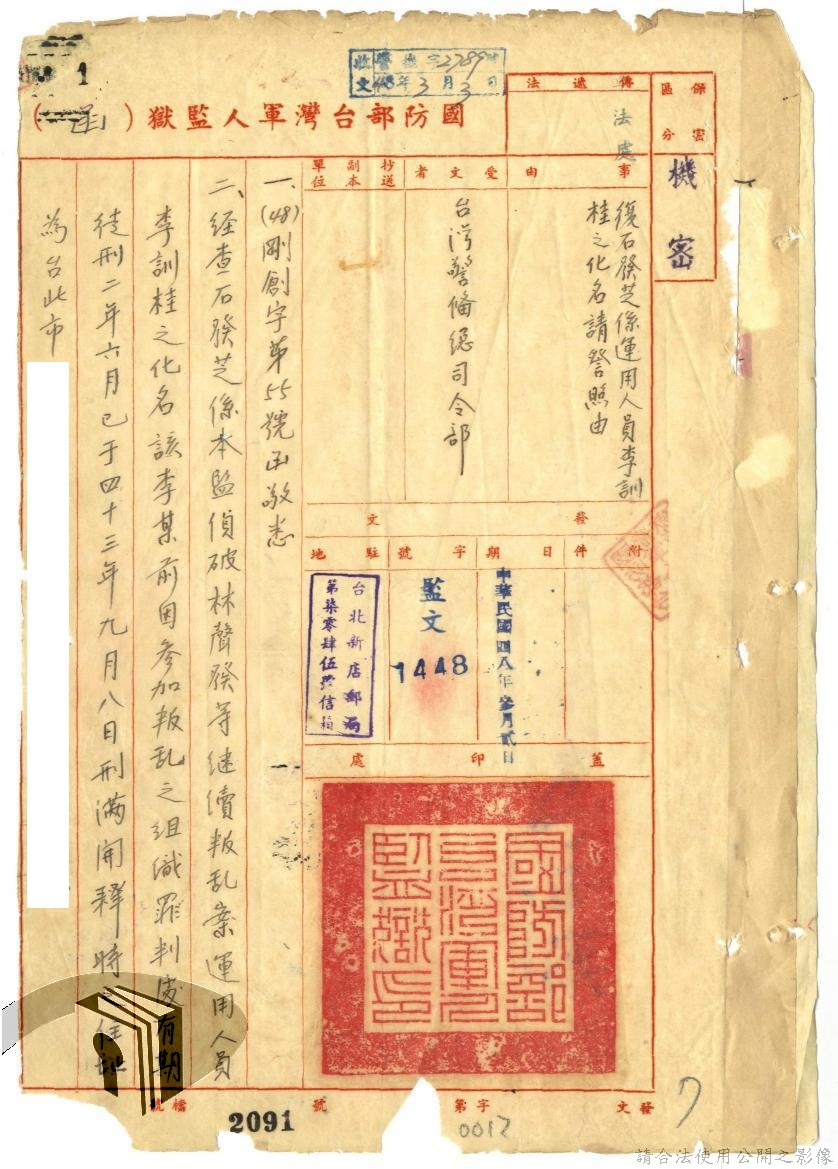 保密區分
機密
傳遞法
法處
國防部台灣軍人監獄(函)
收文 警總字2789號
48年3月3日
1
事由
復石發芝係運用人員李訓
桂之化名請詧照由
受文者
台灣警備總司令部
抄送副本單位
發文
附件
日期
中華民國四八年參月貳日
字號
監文
1448
駐地
台北新店郵局
第柒零肆伍號信箱
蓋印處
國防部
台灣軍人
監獄印
一、(48)剛創字第55號函敬悉
二、經查石發芝係本監偵破林聲發等继續叛乱案運用人員
李訓桂之化名該李某前因参加叛乱之組織罪判處有期
徒刑二年六月已于四十三年九月八日刑滿開釋時住址
為台北市
發文 字第 號
檔號
2091
0012
7
請合法使用公開之影像